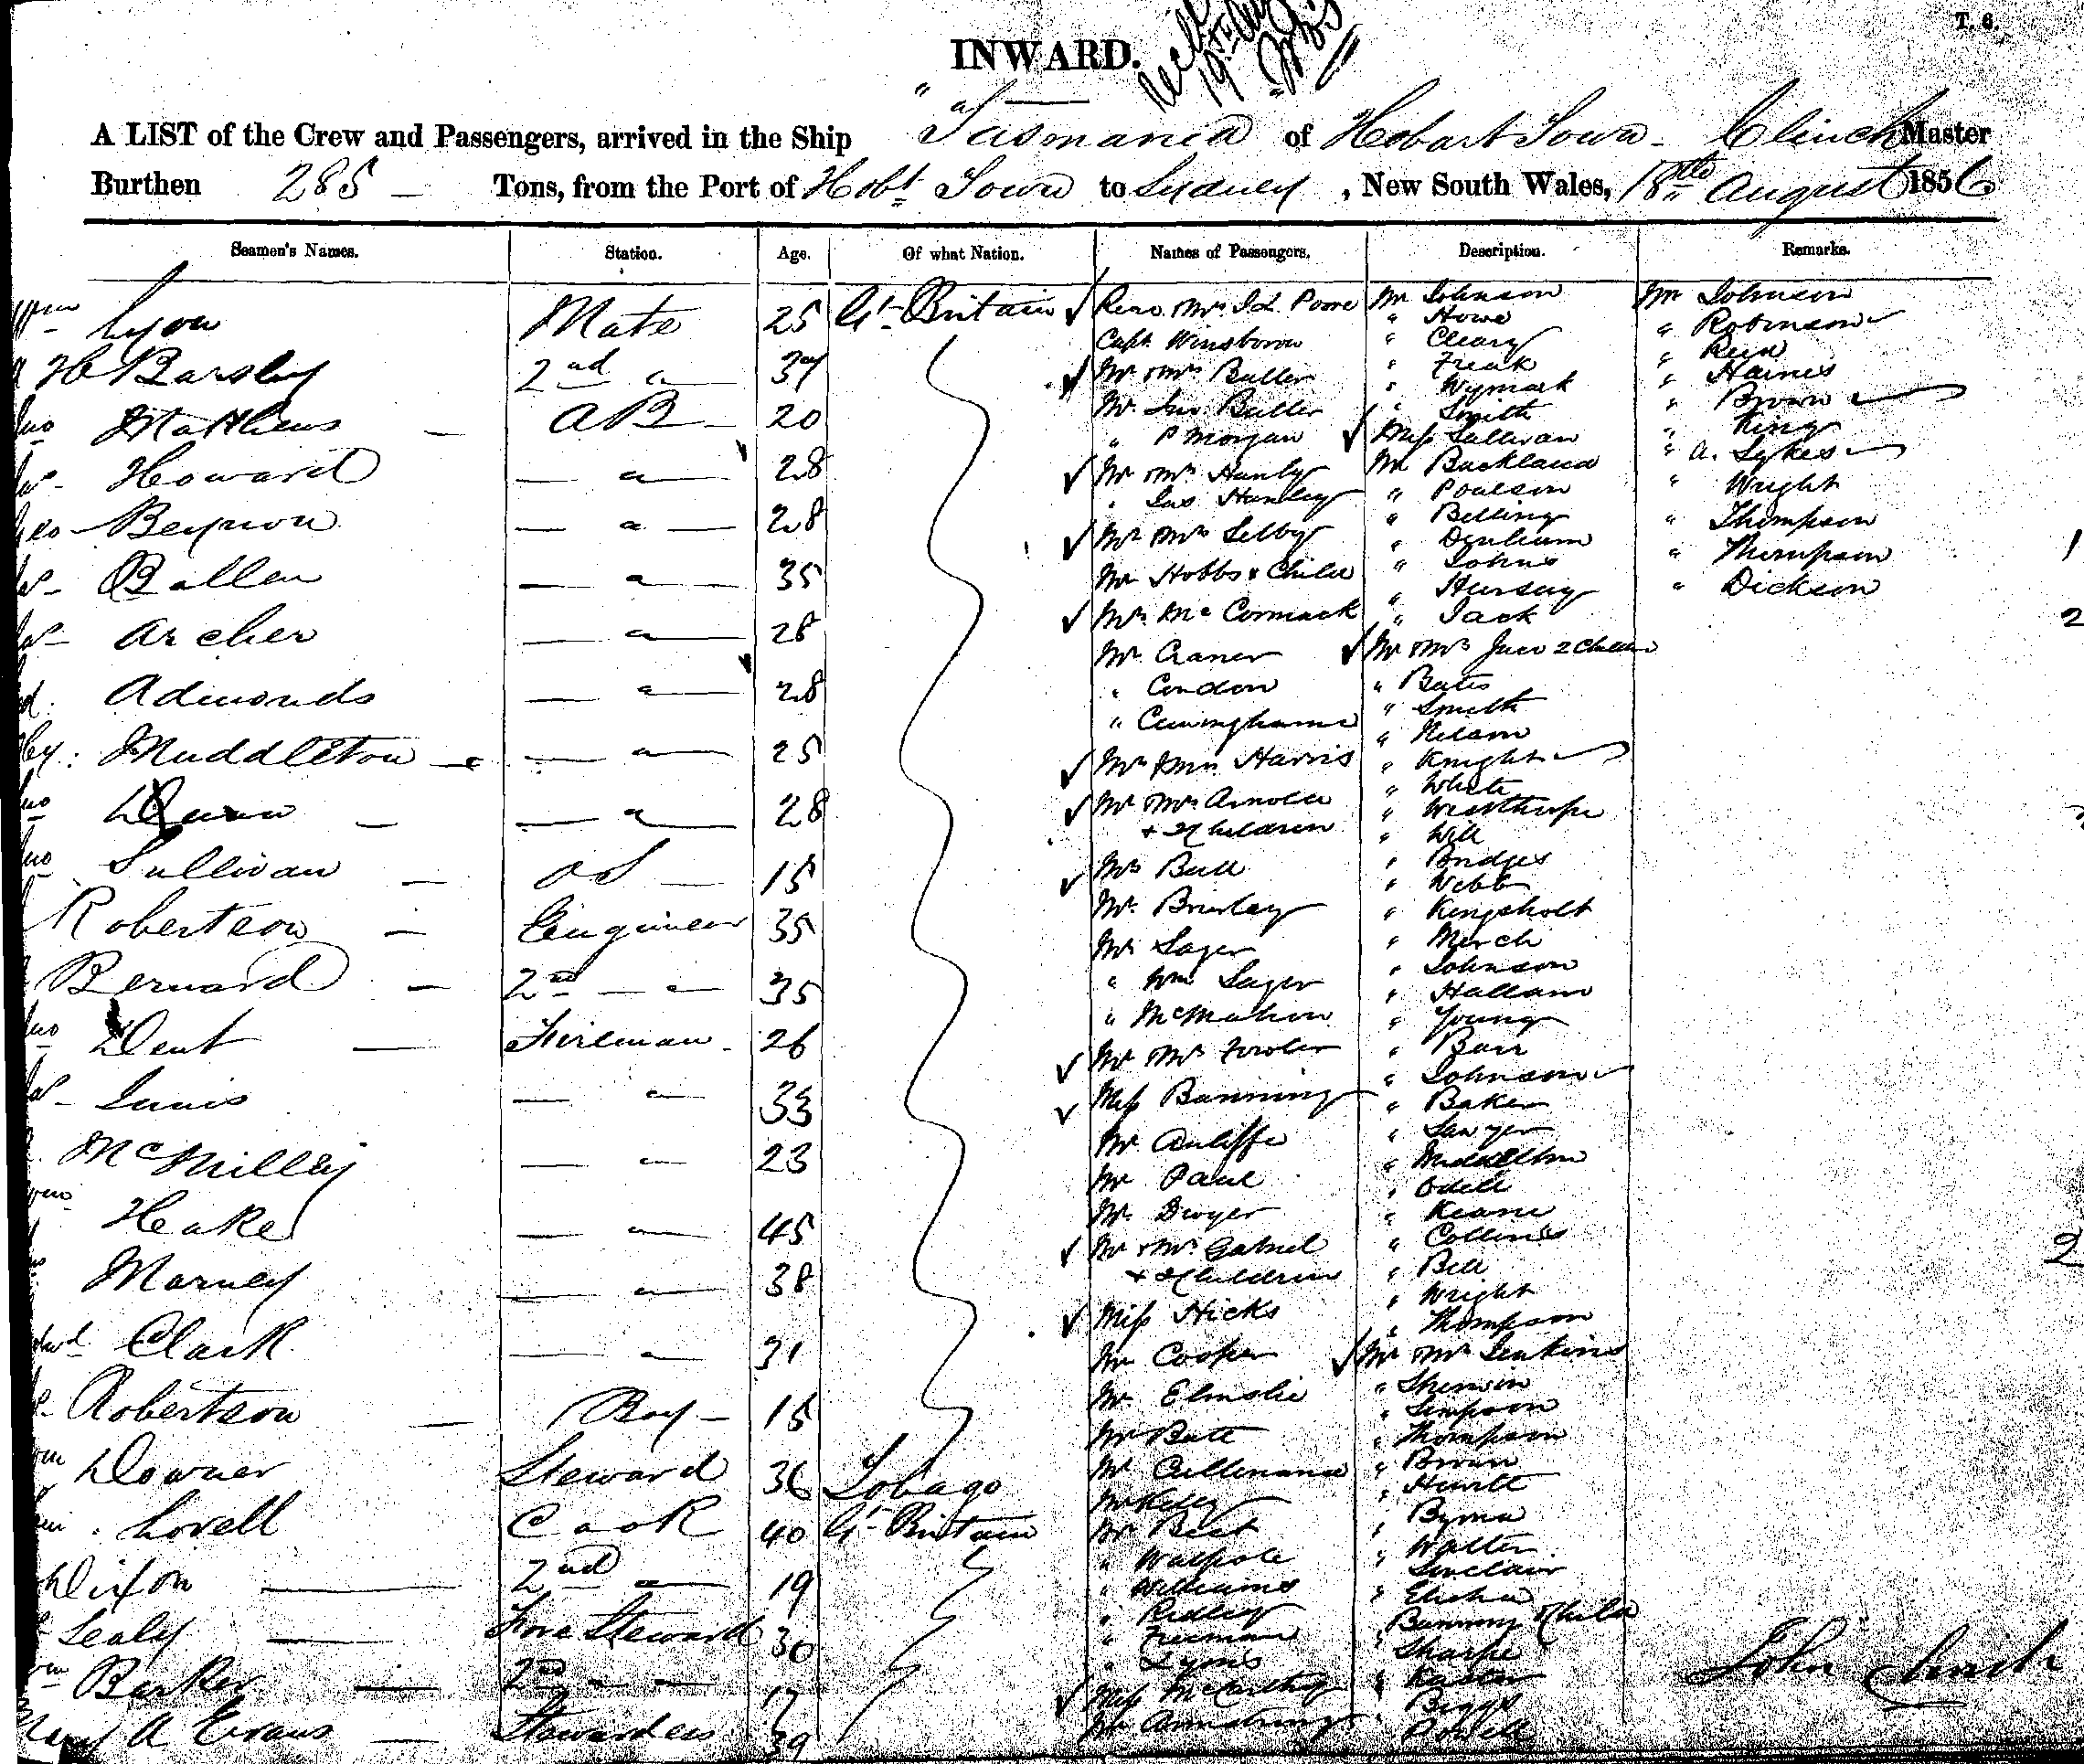 T. 6.
INWARD.
A LIST of the Crew and Passengers, arrived in the Ship Tasmania of Hobart Town - Clinch Master
Burthen 285 - Tons, from the Port of Hobt Town to Sydney, New South Wales, 18th August 1856
Seamen's Names. Station. Age. Of what Nation. Names of Passengers. Description. Remarks.
Lyon Mate 25 Gt Britain
H Barsley 2nd " 37
Jno Matthews AB 20
Jas Howard " 28
Geo Beynon " 28
Jas Ballen " 35
Jas Archer " 28
Admonds " 28
Muddleton " 25
Jno Dunn " 28
Jno Sullivan OS 15
Robertson Engineer 35
Bernard 2nd " 35
Jno Dent Fireman 26
Innis " 33
McMilley " 23
Heaked " 45
Marney " 38
Edwd Clark " 31
Robertson Boy 15
Wm Downer Steward 36 Tobago
Lovell Cook 40 Gt Britain
Dixon 2nd " 19
Sealy Fore Steward 30
Wm Barker 2nd " 17
Mary A Evans Stewardess 39
Revd Mrs Poore
Capt Winsborow
Mr & Mrs Butler
Mr Jno Butler
" P Morgan
Mr & Mrs Hanly
" Jas Hanley
Mr & Mrs Selby
Mr Hobbs & Child
Mrs McCormack
Mr Craner
" Condon
" Cuninghame
Mr & Mrs Harris
Mr & Mrs Arnold
& 2 Children
Mrs Bull
Mr Brierley
Mr Sager
" Wm Sager
" McMahon
Mr & Mrs Fowler
Miss Banning
Mr Anliffe
Mr Paul
Mr Dwyer
Mr & Mrs Gabriel
& 2 Children
Miss Hicks
Mr Cooper
Mr Elmslie
Mr Batt
Mr Cullinane
Mr Kelly
Mr Best
" Walpole
" Williams
" Ridley
" Freeman
" Lyons
Miss McCarthy
Mr Armstrong
Mr Johnson
" Howe
" Cleary
" Freak
" Wymark
" Smith
Miss Sullivan
Mr Buckland
" Poulson
" Belling
" Denham
" Johns
" Hursey
" Jack
Mr & Mrs 2 Children
" Bates
" Smith
" Nelson
" Knight
" White
" Will
" Bridges
" Webb
" Kingsholt
" March
" Johnson
" Hallam
" Young
" Barr
" Johnson
" Baker
" Sawyer
" Middleton
" Odell
" Keane
" Collins
" Bell
" Wright
" Thompson
Mr & Mrs Jenkins
" Sherwin
" Simpson
" Thompson
" Brown
" Hewitt
" Byrne
" Walter
" Sinclair
" Elisha
Banning & Child
" Sharpe
" Biggs
" Powell
Mr Johnson
" Robinson
" Reid
" Haines
" Brown
" King
" A. Sykes
" Wright
" Thompson
" Thompson
" Dickson
1
2
2
John Clinch